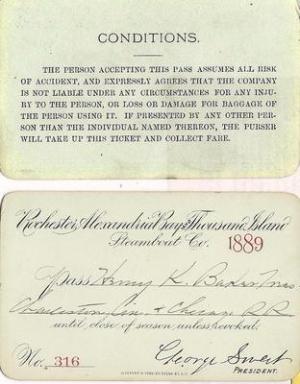 CONDITIONS.
THE PERSON ACCEPTING THIS PASS ASSUMES ALL RISK
OF ACCIDENT, AND EXPRESSLY AGREES THAT THE COMPANY
IS NOT LIABLE UNDER ANY CIRCUMSTANCES FOR ANY INJU-
RY TO THE PERSON, OR LOSS OR DAMAGE FOR BAGGAGE OF
THE PERSON USING IT. IF PRESENTED BY ANY OTHER PER-
SON THAN THE INDIVIDUAL NAMED THEREON, THE PURSER
WILL TAKE UP THIS TICKET AND COLLECT FARE.
Rochester, Alexandria Bay & Thousand Island
Steamboat Co. 1889
Pass Henry K. Baker
R.R.
until close of season unless revoked.
No. 316
George Sweet
PRESIDENT.